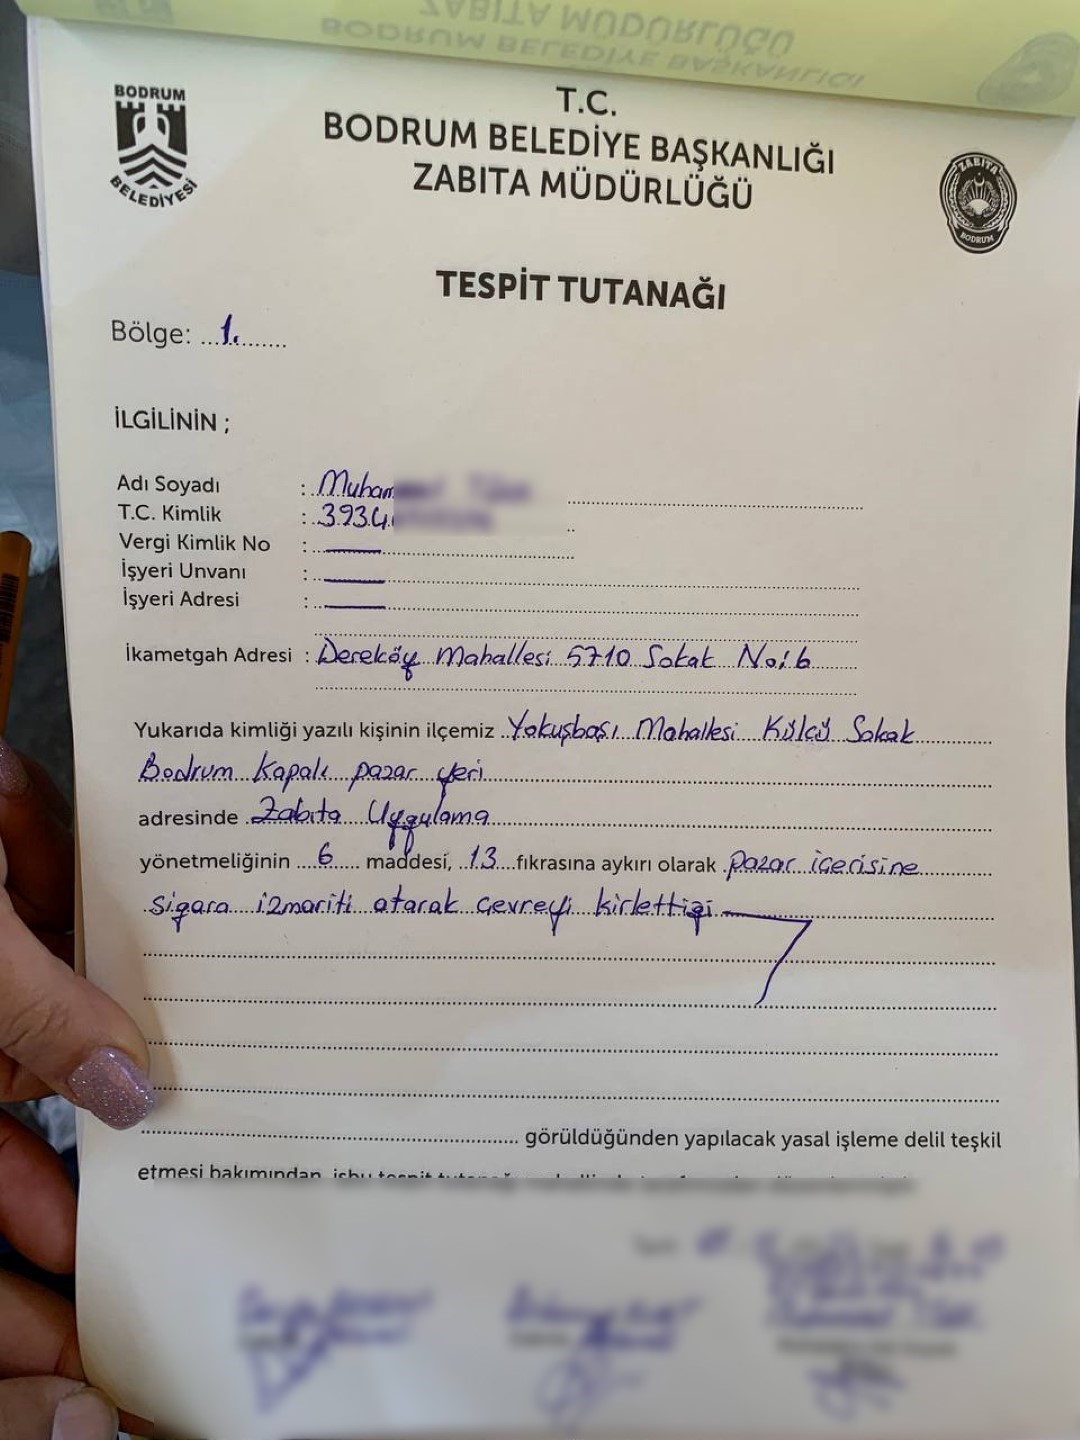 ZABITA MÜDÜRLÜĞÜ
BODRUM BELEDİYE BAŞKANLIĞI
BODRUM
BELEDİYESİ
T.C.
BODRUM BELEDİYE BAŞKANLIĞI
ZABITA MÜDÜRLÜĞÜ
ZABITA
BODRUM
TESPİT TUTANAĞI
Bölge: 1.
İLGİLİNİN ;
Adı Soyadı : Muham
T.C. Kimlik : 3934
Vergi Kimlik No :
İşyeri Unvanı :
İşyeri Adresi :
İkametgah Adresi : Dereköy Mahallesi 5710 Sokak No:6
Yukarıda kimliği yazılı kişinin ilçemiz Yokuşbaşı Mahallesi Külcü Sokak
Bodrum Kapalı pazar yeri
adresinde Zabıta Uygulama
yönetmeliğinin 6 maddesi, 13 fıkrasına aykırı olarak pazar içerisine
sigara izmariti atarak çevreyi kirlettiği
görüldüğünden yapılacak yasal işleme delil teşkil
etmesi bakımından, işbu tespit